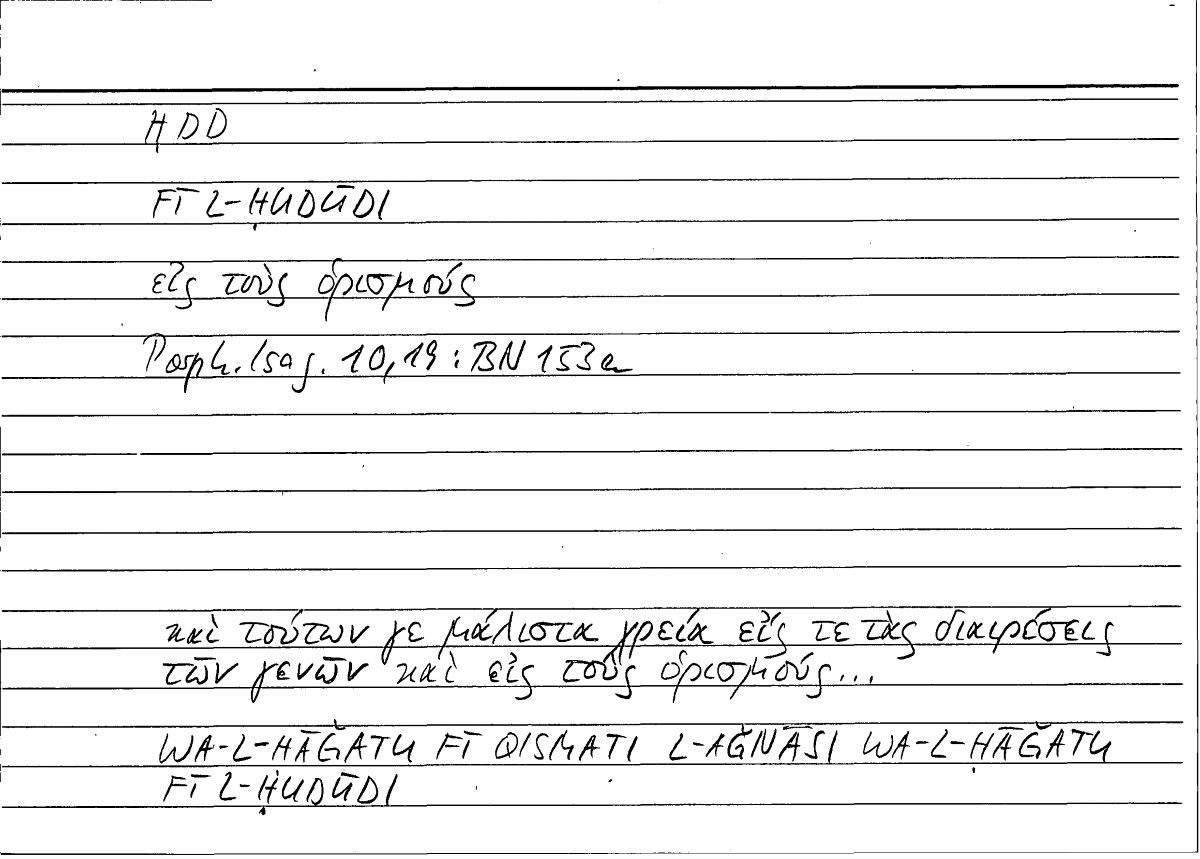 ḤDD
FĪ L-ḤUDŪDI
εἰς τοὺς ὁρισμούς
Porph. Isag. 10,19 : BN 153a
καὶ τούτων γε μάλιστα χρεία εἴς τε τὰς διαιρέσεις
τῶν γενῶν καὶ εἰς τοὺς ὁρισμούς...
WA-L-HĀĞATU FĪ QISMATI L-AĞNĀSI WA-L-ḤĀĞATU
FĪ L-ḤUDŪDI